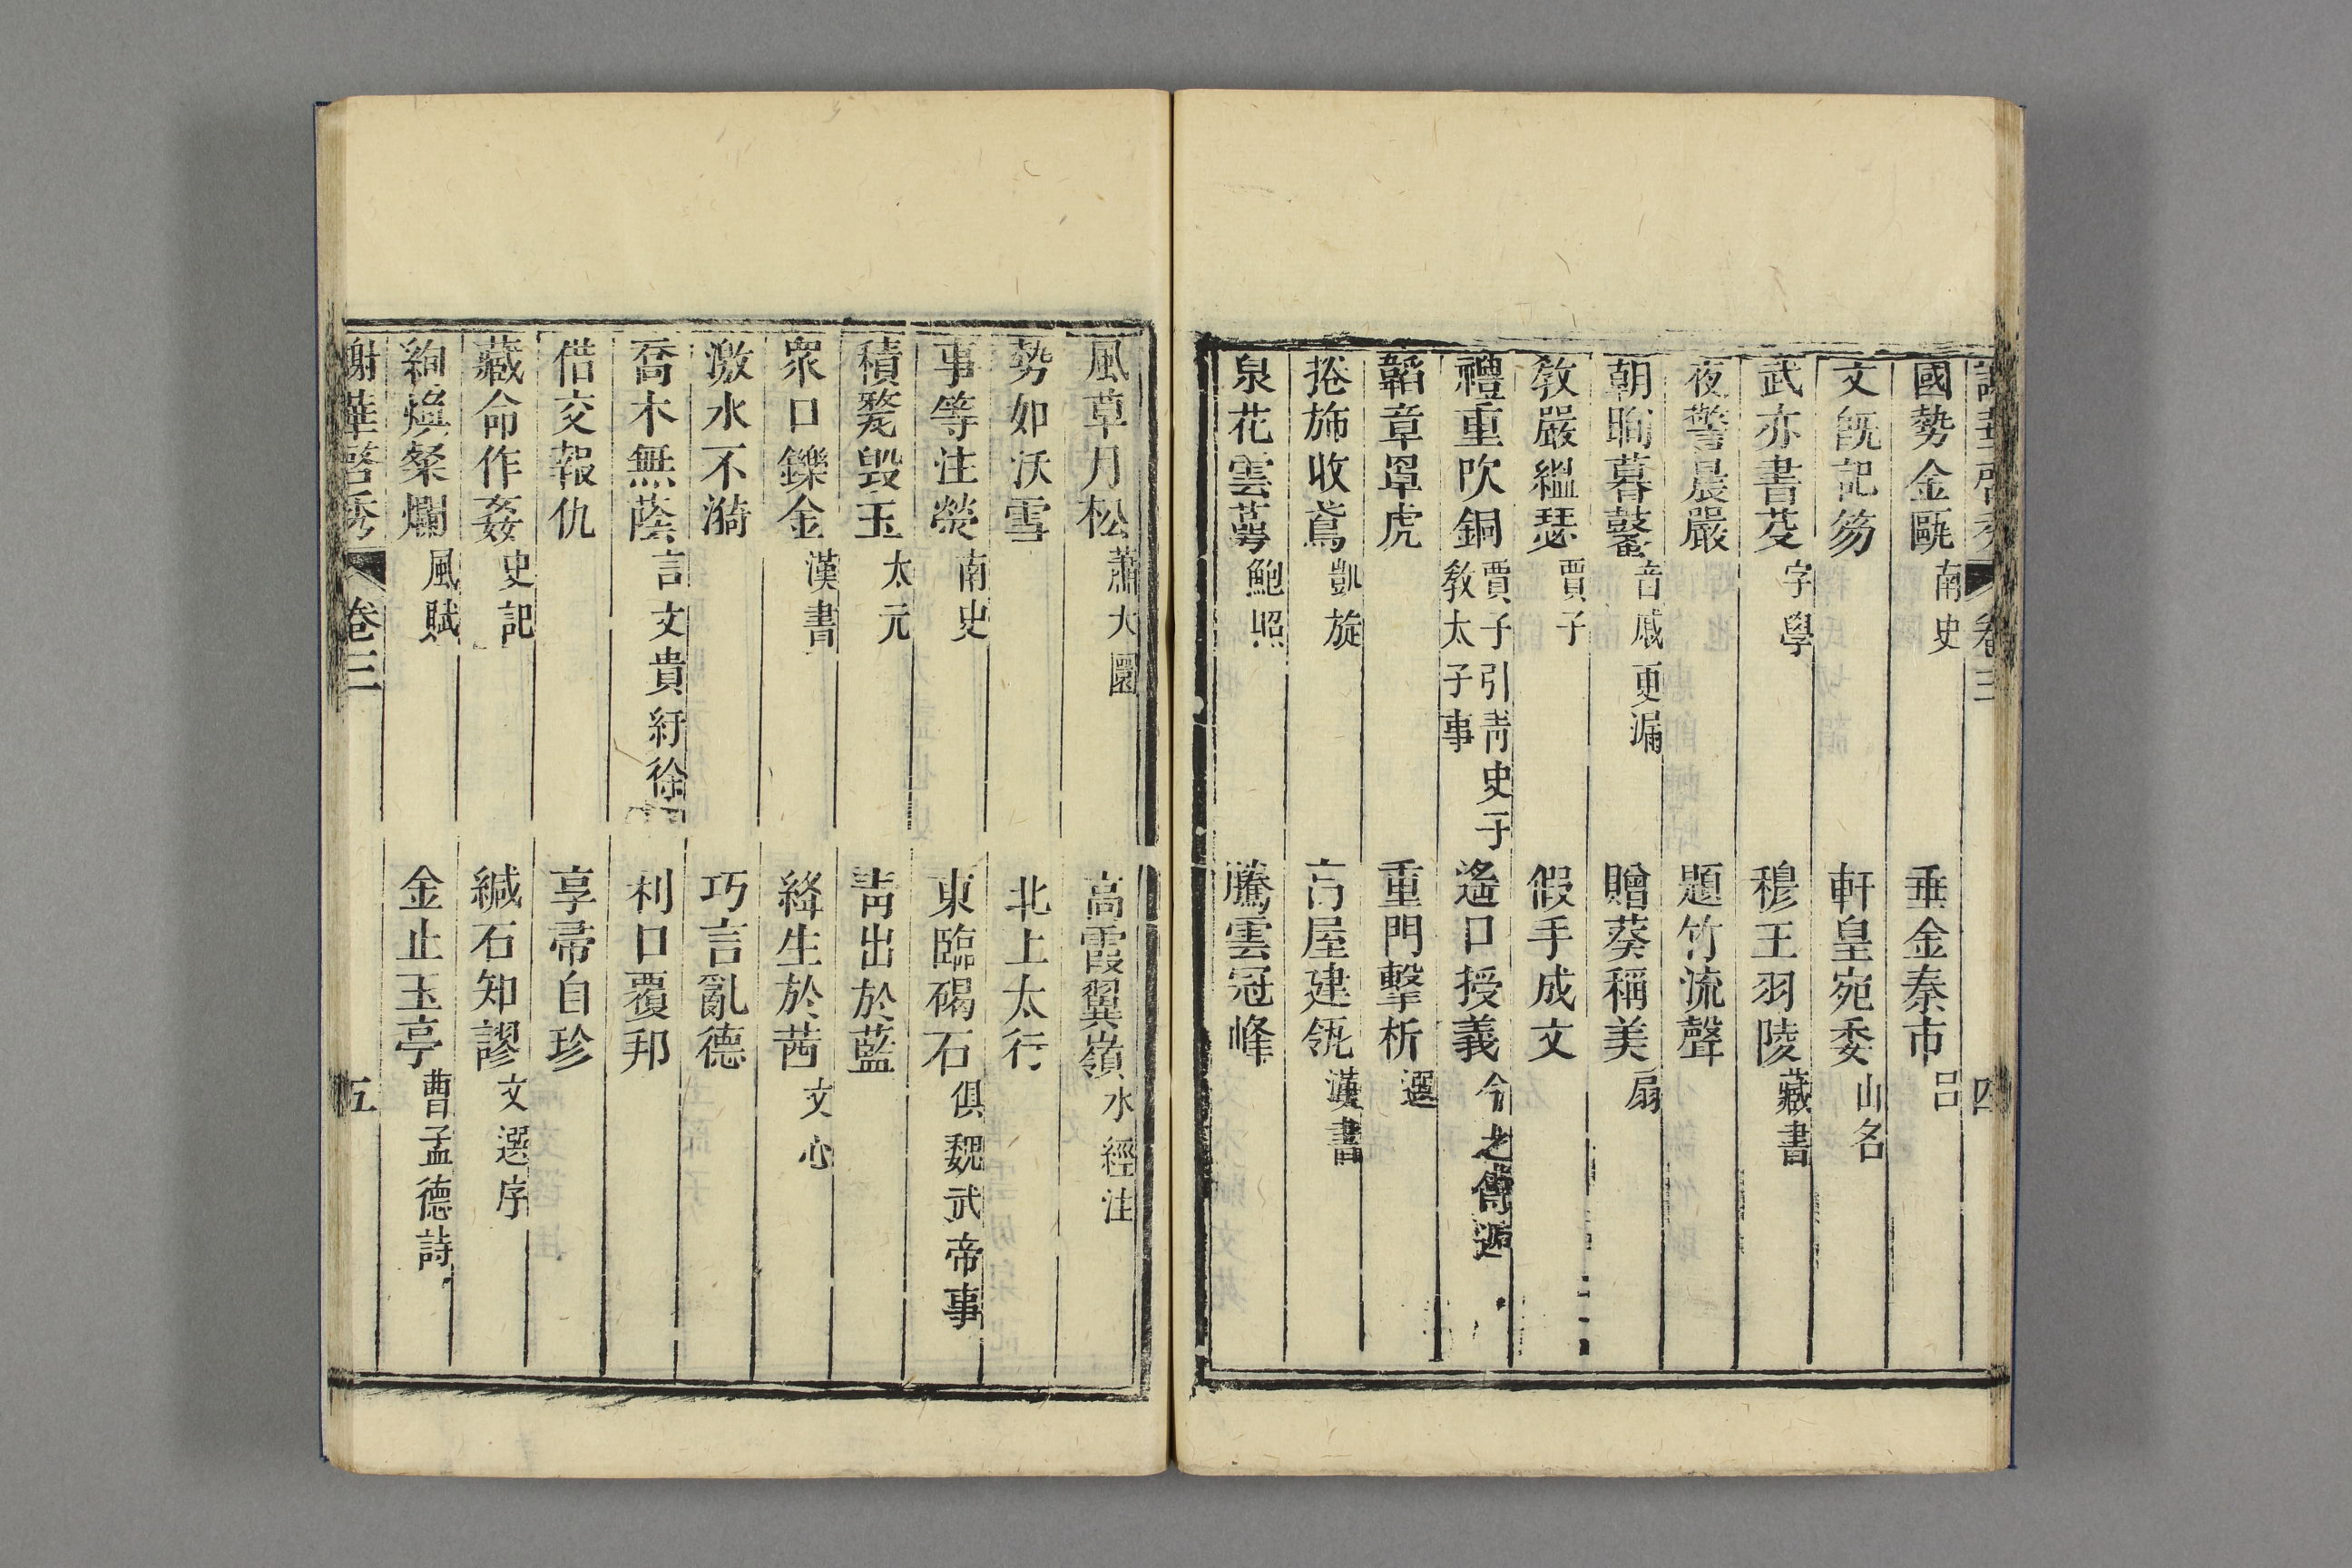 謝華啓秀 卷三 四
國勢金甌 南史 垂金秦市 呂
文旣記笏 軒皇宛委 山名
武亦書芟 字學 穆王羽陵 藏書
夜警晨嚴 題竹流聲
朝晌暮鼜 音戚更漏 贈葵稱美 扇
敎嚴縕瑟 賈子 假手成文
禮重吹銅 賈子引靑史子敎太子事 遙口授義 今之傳遞
韜章罩虎 重門擊柝 選
捲斾收鳶 凱旋 高屋建瓴 漢書
泉花雲萼 鮑照 騰雲冠峰
風草月松 蕭大圜 高霞翼嶺 水經注
勢如沃雪 北上太行
事等注熒 南史 東臨碣石 俱魏武帝事
積毀玉 太元 靑出於藍
衆口鑠金 漢書 絳生於茜 文心
激水不漪 巧言亂德
喬木無蔭 言文貴紆徐 利口覆邦
借交報仇 享帚自珍
藏命作姦 史記 緘石知謬 文選序
絢煥粲爛 風賦 金止玉亭 曹孟德詩
謝華啓秀 卷三 五